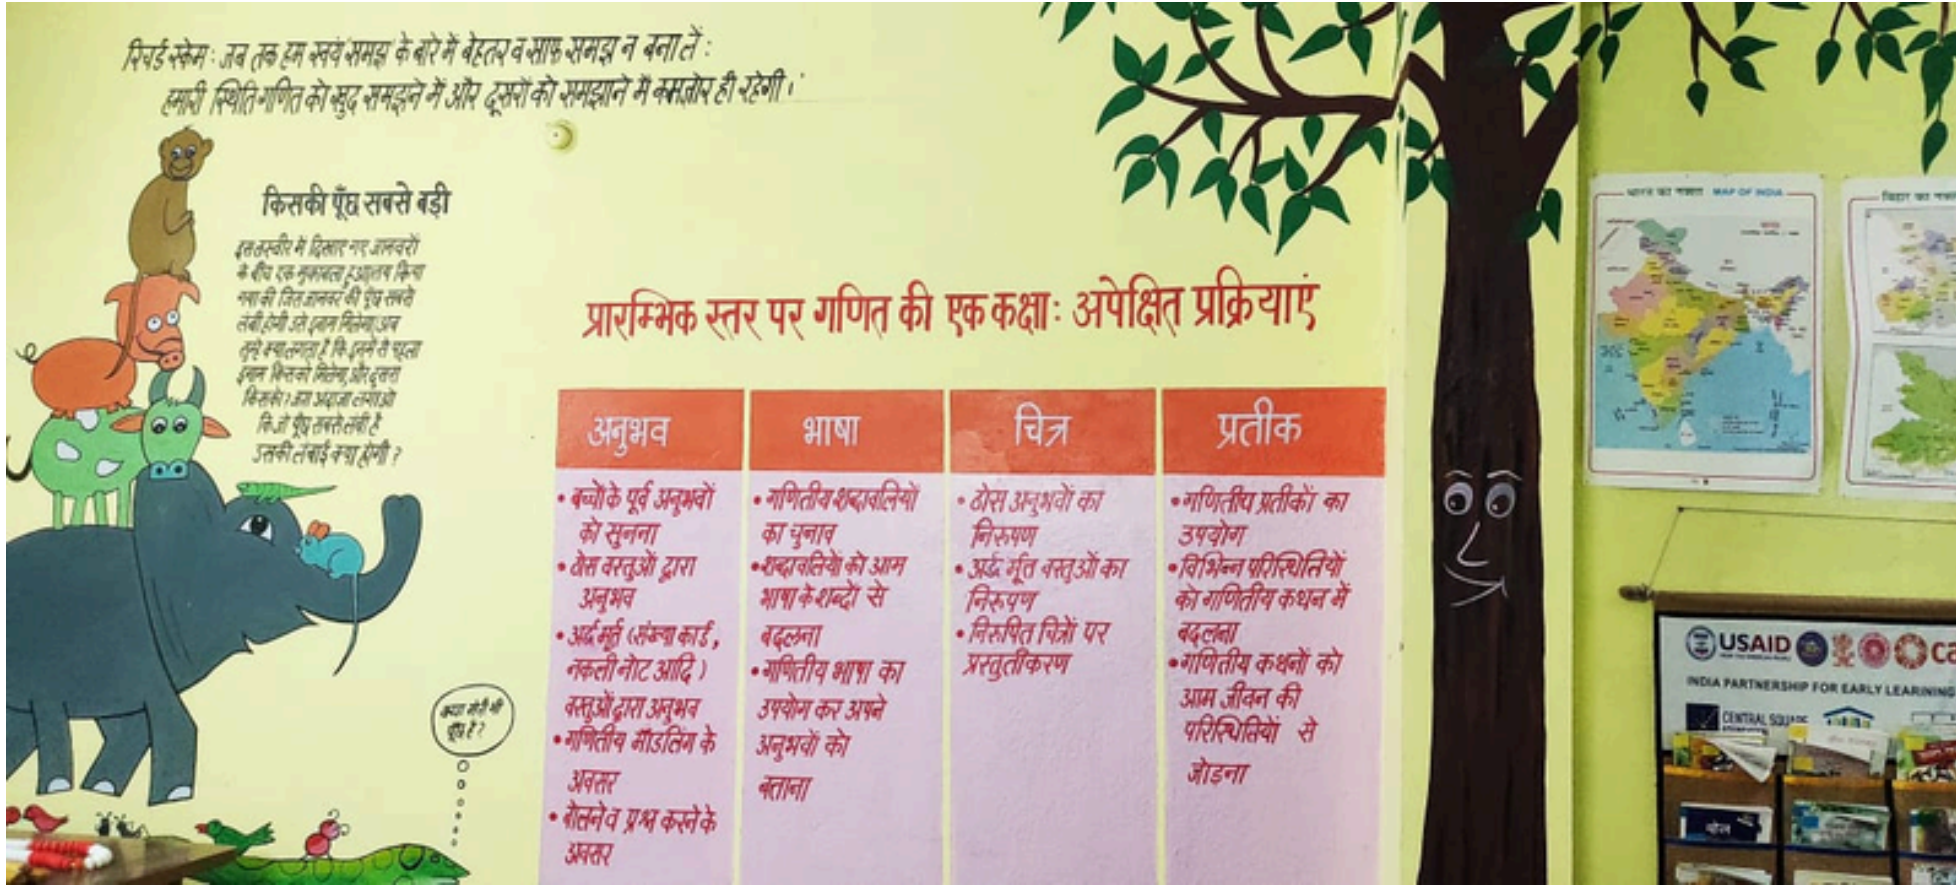 रिचर्ड स्केम : जब तक हम स्वयं 'समझ' के बारे में बेहतर व साफ समझ न बना लें :
हमारी स्थिति गणित को खुद समझने में और दूसरों को समझाने में कमज़ोर ही रहेगी ।
किसकी पूँछ सबसे बड़ी
इस तस्वीर में दिखाए गए जानवरों
के बीच एक मुकाबला हुआ। तय किया
गया की जिस जानवर की पूँछ सबसे
लंबी होगी उसे इनाम मिलेगा। अब
तुम्हे क्या लगता है कि इनमें से पहला
इनाम किसको मिलेगा, और दूसरा
किसको? जरा अंदाजा लगाओ
कि जो पूँछ सबसे लंबी है
उसकी लंबाई क्या होगी ?
क्या मेरी भी
पूँछ है?
प्रारम्भिक स्तर पर गणित की एक कक्षा : अपेक्षित प्रक्रियाएं
अनुभव
• बच्चों के पूर्व अनुभवों
को सुनना
• ठोस वस्तुओं द्वारा
अनुभव
• अर्द्ध मूर्त (संख्या कार्ड,
नकली नोट आदि)
वस्तुओं द्वारा अनुभव
• गणितीय मॉडलिंग के
अवसर
• बोलने व प्रश्न करने के
अवसर
भाषा
• गणितीय शब्दावलियों
का चुनाव
• शब्दावलियों को आम
भाषा के शब्दों से
बदलना
• गणितीय भाषा का
उपयोग कर अपने
अनुभवों को
बताना
चित्र
• ठोस अनुभवों का
निरूपण
• अर्द्ध मूर्त वस्तुओं का
निरूपण
• निरूपित चित्रों पर
प्रस्तुतीकरण
प्रतीक
• गणितीय प्रतीकों का
उपयोग
• विभिन्न परिस्थितियों
को गणितीय कथन में
बदलना
• गणितीय कथनों को
आम जीवन की
परिस्थितियों से
जोड़ना
भारत का नक्शा MAP OF INDIA
बिहार का
USAID
INDIA PARTNERSHIP FOR EARLY LEARNING
CENTRAL SQUARE